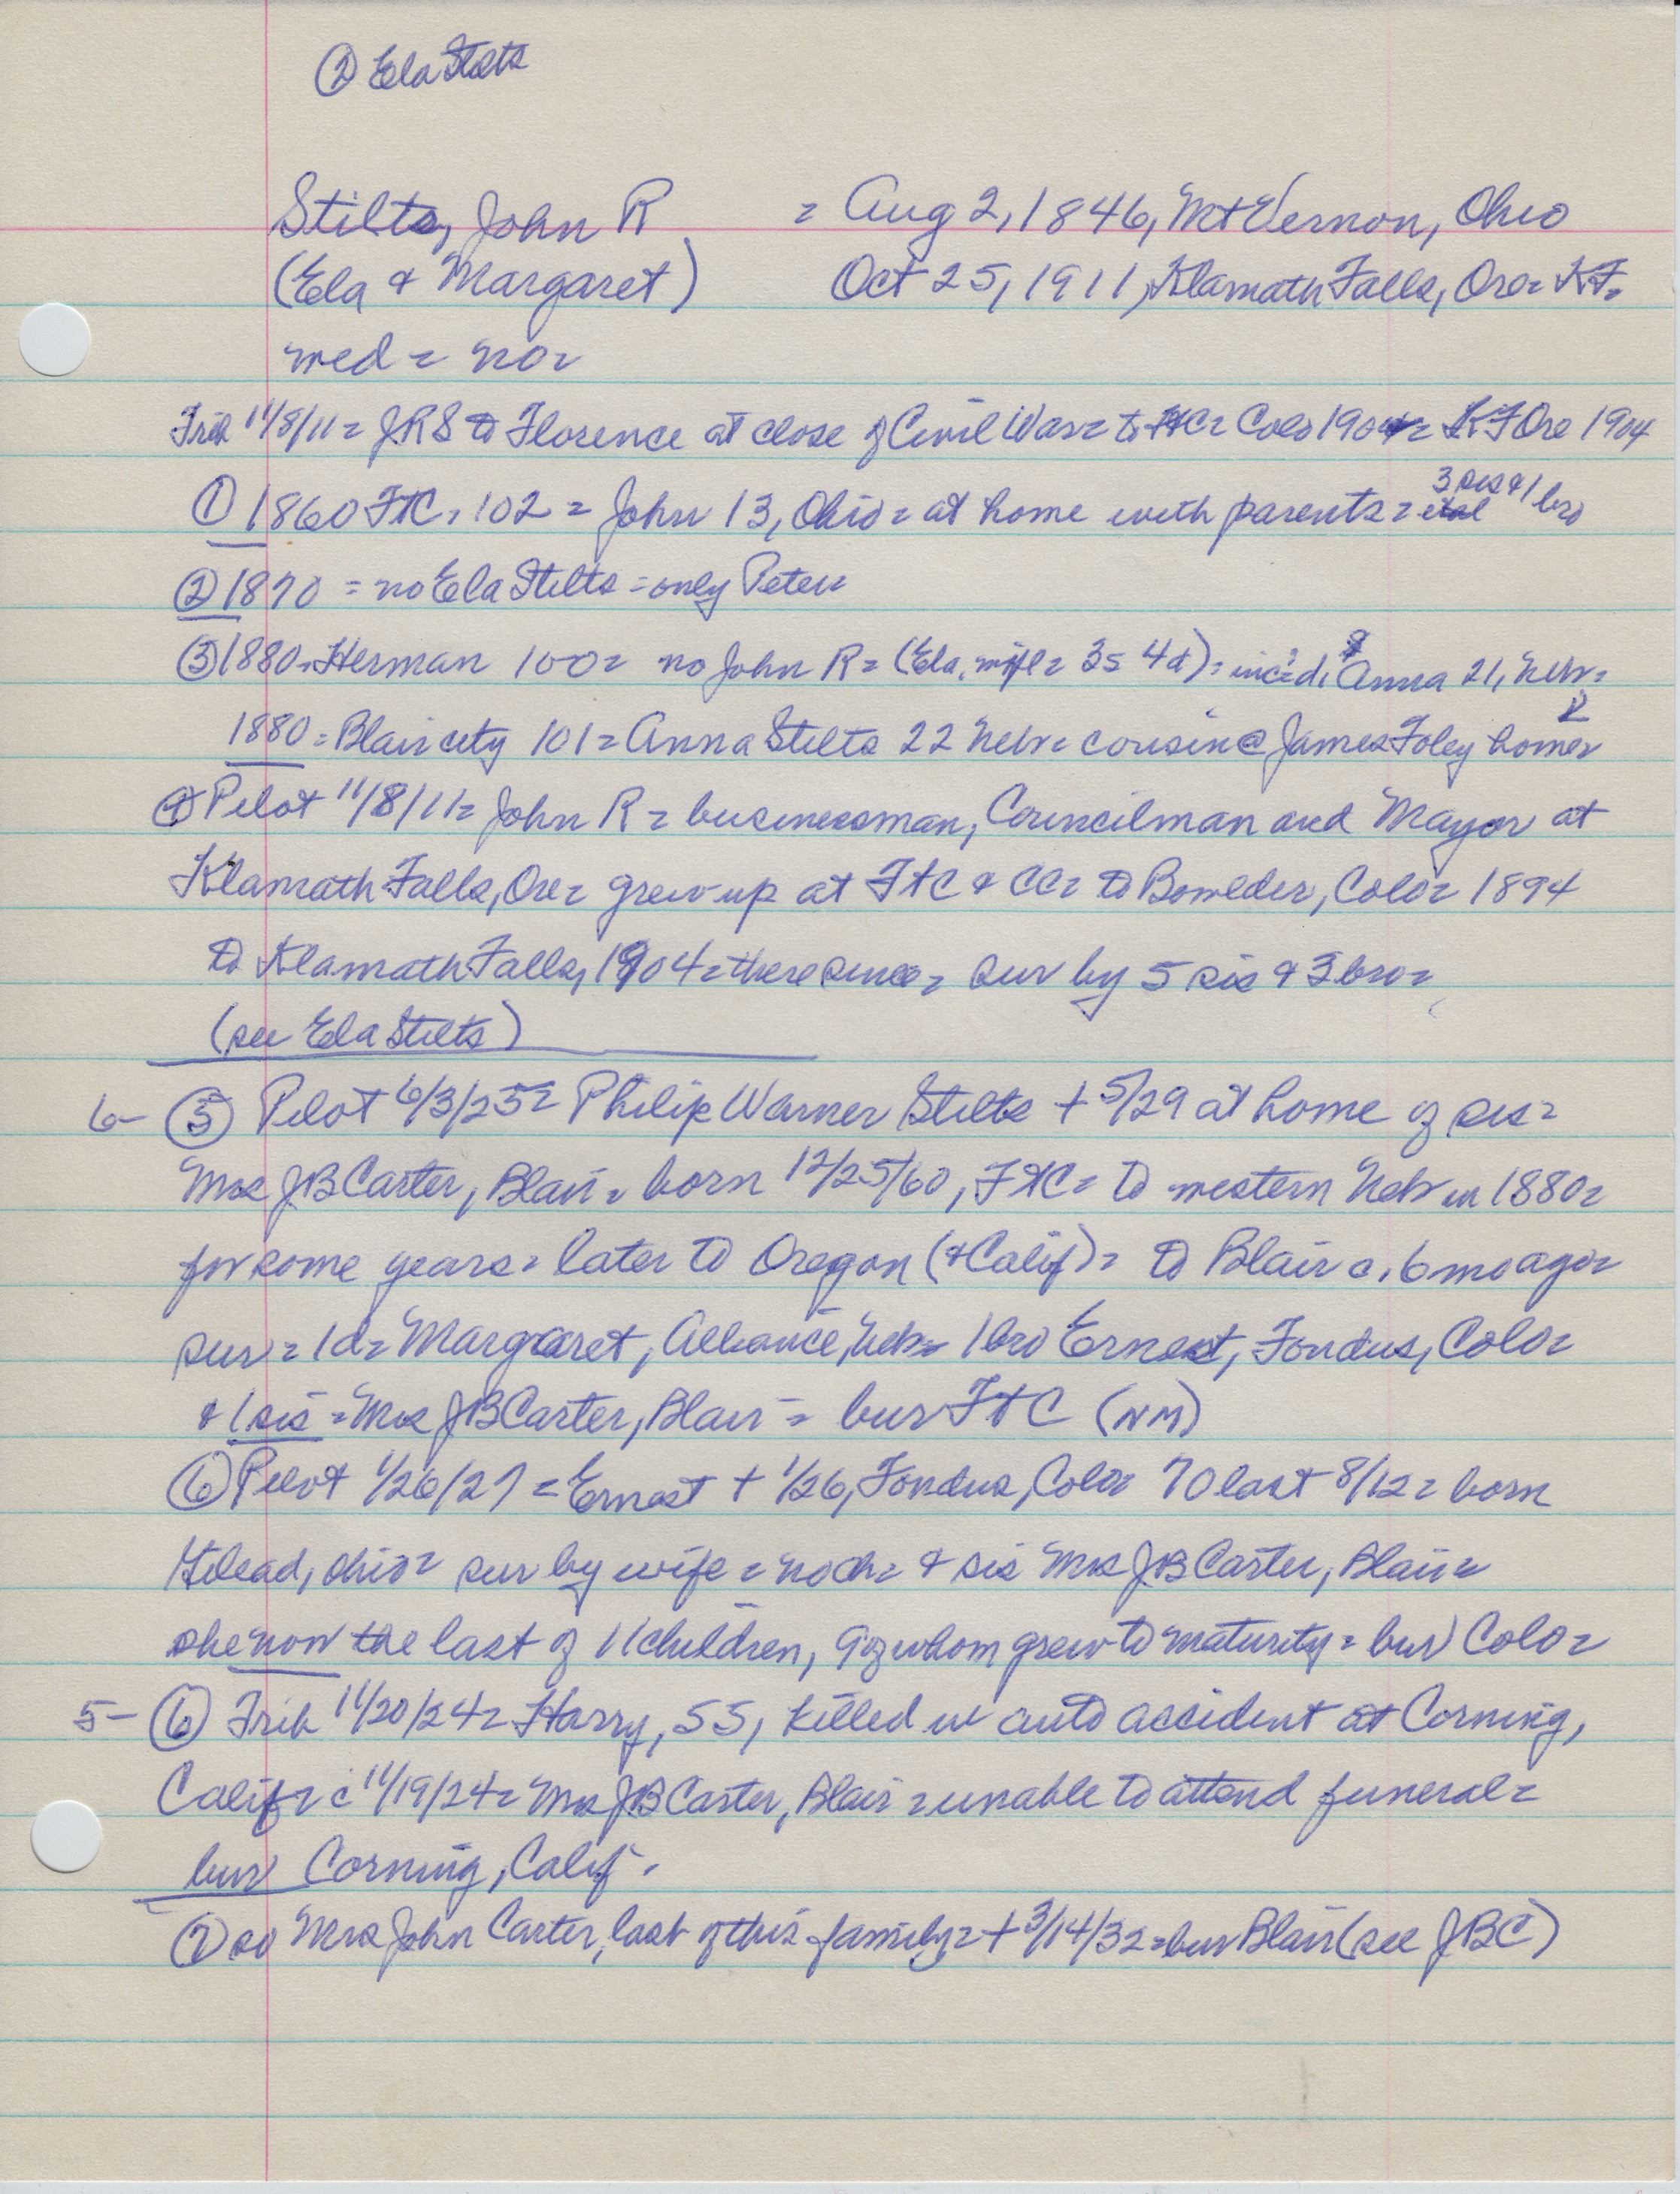 ② Ela Stilts
Stilts, John R = Aug 2, 1846, Mt Vernon, Ohio
(Ela & Margaret) Oct 25, 1911, Klamath Falls, Ore = KF=
med = no=
Trib 11/8/11 = JRS to Florence at close of Civil War = to FtC = Colo 1904 = KF Ore 1904
① 1860 FTC, 102 = John 13, Ohio = at home with parents = 3 sis & 1 bro
② 1870 = no Ela Stilts = only Peter=
③ 1880 = Herman 100 = no John R = (Ela, wife = 3s 4d) = Anna 21, Nebr=
1880 = Blair city 101 = Anna Stilts 22 Nebr = cousin @ James Foley home=
④ Pilot 11/8/11 = John R = businessman, Councilman and Mayor at
Klamath Falls, Ore = grew up at FtC & CC = to Boulder, Colo = 1894
to Klamath Falls, 1904 = there since = sur by 5 sis & 3 bro=
(see Ela Stilts)
6- ⑤ Pilot 6/3/25 = Philip Warner Stilts + 5/29 at home of sis=
Mrs JB Carter, Blair = born 12/25/60, FtC = to western Neb in 1880=
for some years = later to Oregon (& Calif) = to Blair c. 6 mo ago=
sur = 1d = Margaret, Alliance, Neb = 1 bro Ernest, Fondus, Colo=
& 1 sis = Mrs JB Carter, Blair = bur FtC (NM)
⑥ Pilot 1/26/27 = Ernest + 1/26, Fondus, Colo = 70 last 8/12 = born
Gilead, Ohio = sur by wife = no ch = & sis Mrs JB Carter, Blair=
she now the last of 11 children, 9 of whom grew to maturity = bur Colo=
5- ⑥ Trib 11/20/24 = Harry, 55, killed in auto accident at Corning,
Calif = c 11/19/24 = Mrs JB Carter, Blair = unable to attend funeral=
bur Corning, Calif.
⑦ so Mrs John Carter, last of this family = + 3/14/32 = bur Blair (see JBC)